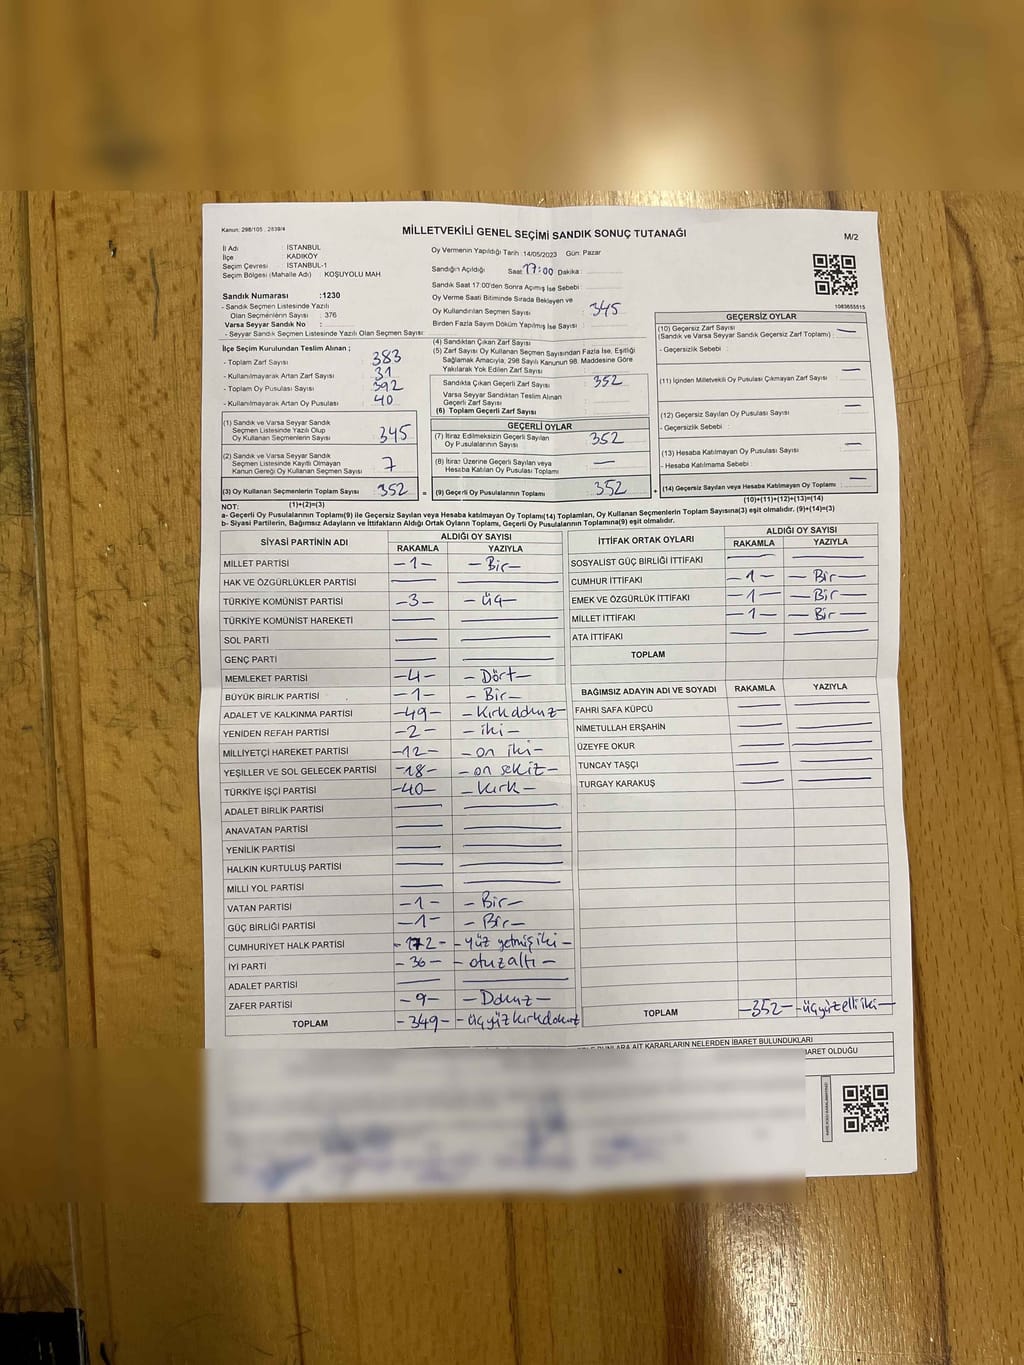 Kanun: 298/105 , 2839/4
MİLLETVEKİLİ GENEL SEÇİMİ SANDIK SONUÇ TUTANAĞI
M/2
İl Adı : İSTANBUL
İlçe : KADIKÖY
Seçim Çevresi : İSTANBUL-1
Seçim Bölgesi (Mahalle Adı) : KOŞUYOLU MAH
Sandık Numarası :1230
- Sandık Seçmen Listesinde Yazılı
Olan Seçmenlerin Sayısı : 376
Varsa Seyyar Sandık No :
- Seyyar Sandık Seçmen Listesinde Yazılı Olan Seçmen Sayısı:
Oy Vermenin Yapıldığı Tarih :14/05/2023 Gün: Pazar
Sandığın Açıldığı Saat 17:00 Dakika :
Sandık Saat 17:00'den Sonra Açımış İse Sebebi :
Oy Verme Saati Bitiminde Sırada Bekleyen ve
Oy Kullandırılan Seçmen Sayısı : 345
Birden Fazla Sayım Döküm Yapılmış İse Sayısı :
1083655515
İlçe Seçim Kurulundan Teslim Alınan ;
- Toplam Zarf Sayısı : 383
- Kullanılmayarak Artan Zarf Sayısı : 31
- Toplam Oy Pusulası Sayısı : 392
- Kullanılmayarak Artan Oy Pusulası : 40
(1) Sandık ve Varsa Seyyar Sandık
Seçmen Listesinde Yazılı Olup
Oy Kullanan Seçmenlerin Sayısı : 345
(2) Sandık ve Varsa Seyyar Sandık
Seçmen Listesinde Kayıtlı Olmayan
Kanun Gereği Oy Kullanan Seçmen Sayısı : 7
(3) Oy Kullanan Seçmenlerin Toplam Sayısı : 352 =
(1)+(2)=(3)
(4) Sandıktan Çıkan Zarf Sayısı :
(5) Zarf Sayısı Oy Kullanan Seçmen Sayısından Fazla İse, Eşitliği
Sağlamak Amacıyla, 298 Sayılı Kanunun 98. Maddesine Göre
Yakılarak Yok Edilen Zarf Sayısı :
Sandıkta Çıkan Geçerli Zarf Sayısı : 352
Varsa Seyyar Sandıktan Teslim Alınan
Geçerli Zarf Sayısı :
(6) Toplam Geçerli Zarf Sayısı :
GEÇERLİ OYLAR
(7) İtiraz Edilmeksizin Geçerli Sayılan
Oy Pusulalarının Sayısı : 352
(8) İtiraz Üzerine Geçerli Sayılan veya
Hesaba Katılan Oy Pusulası Toplamı : —
(9) Geçerli Oy Pusulalarının Toplamı : 352 +
GEÇERSİZ OYLAR
(10) Geçersiz Zarf Sayısı
(Sandık ve Varsa Seyyar Sandık Geçersiz Zarf Toplamı) : —
- Geçersizlik Sebebi :
(11) İçinden Milletvekili Oy Pusulası Çıkmayan Zarf Sayısı : —
(12) Geçersiz Sayılan Oy Pusulası Sayısı : —
- Geçersizlik Sebebi :
(13) Hesaba Katılmayan Oy Pusulası Sayısı : —
- Hesaba Katılmama Sebebi :
(14) Geçersiz Sayılan veya Hesaba Katılmayan Oy Toplamı : —
(10)+(11)+(12)+(13)=(14)
NOT:
a- Geçerli Oy Pusulalarının Toplamı(9) ile Geçersiz Sayılan veya Hesaba katılmayan Oy Toplamı(14) Toplamları, Oy Kullanan Seçmenlerin Toplam Sayısına(3) eşit olmalıdır. (9)+(14)=(3)
b- Siyasi Partilerin, Bağımsız Adayların ve İttifakların Aldığı Ortak Oyların Toplamı, Geçerli Oy Pusulalarının Toplamına(9) eşit olmalıdır.
SİYASİ PARTİNİN ADI ALDIĞI OY SAYISI
RAKAMLA YAZIYLA
MİLLET PARTİSİ -1- -Bir-
HAK VE ÖZGÜRLÜKLER PARTİSİ — —
TÜRKİYE KOMÜNİST PARTİSİ -3- -üç-
TÜRKİYE KOMÜNİST HAREKETİ — —
SOL PARTİ — —
GENÇ PARTİ — —
MEMLEKET PARTİSİ -4- -Dört-
BÜYÜK BİRLİK PARTİSİ -1- -Bir-
ADALET VE KALKINMA PARTİSİ -49- -Kırkdokuz-
YENİDEN REFAH PARTİSİ -2- -iki-
MİLLİYETÇİ HAREKET PARTİSİ -12- -on iki-
YEŞİLLER VE SOL GELECEK PARTİSİ -18- -on sekiz-
TÜRKİYE İŞÇİ PARTİSİ -40- -Kırk-
ADALET BİRLİK PARTİSİ — —
ANAVATAN PARTİSİ — —
YENİLİK PARTİSİ — —
HALKIN KURTULUŞ PARTİSİ — —
MİLLİ YOL PARTİSİ — —
VATAN PARTİSİ -1- -Bir-
GÜÇ BİRLİĞİ PARTİSİ -1- -Bir-
CUMHURİYET HALK PARTİSİ -172- -yüz yetmiş iki-
İYİ PARTİ -36- -otuzaltı-
ADALET PARTİSİ — —
ZAFER PARTİSİ -9- -Dokuz-
TOPLAM -349- -üçyüzkırkdokuz
İTTİFAK ORTAK OYLARI ALDIĞI OY SAYISI
RAKAMLA YAZIYLA
SOSYALİST GÜÇ BİRLİĞİ İTTİFAKI — —
CUMHUR İTTİFAKI -1- -Bir-
EMEK VE ÖZGÜRLÜK İTTİFAKI -1- -Bir-
MİLLET İTTİFAKI -1- -Bir-
ATA İTTİFAKI — —
TOPLAM
BAĞIMSIZ ADAYIN ADI VE SOYADI RAKAMLA YAZIYLA
FAHRİ SAFA KÜPCÜ — —
NİMETULLAH ERŞAHİN — —
ÜZEYFE OKUR — —
TUNCAY TAŞÇI — —
TURGAY KARAKUŞ — —
TOPLAM -352- -üçyüzelliiki-
BUNLARA AİT KARARLARIN NELERDEN İBARET BULUNDUKLARI
İBARET OLDUĞU